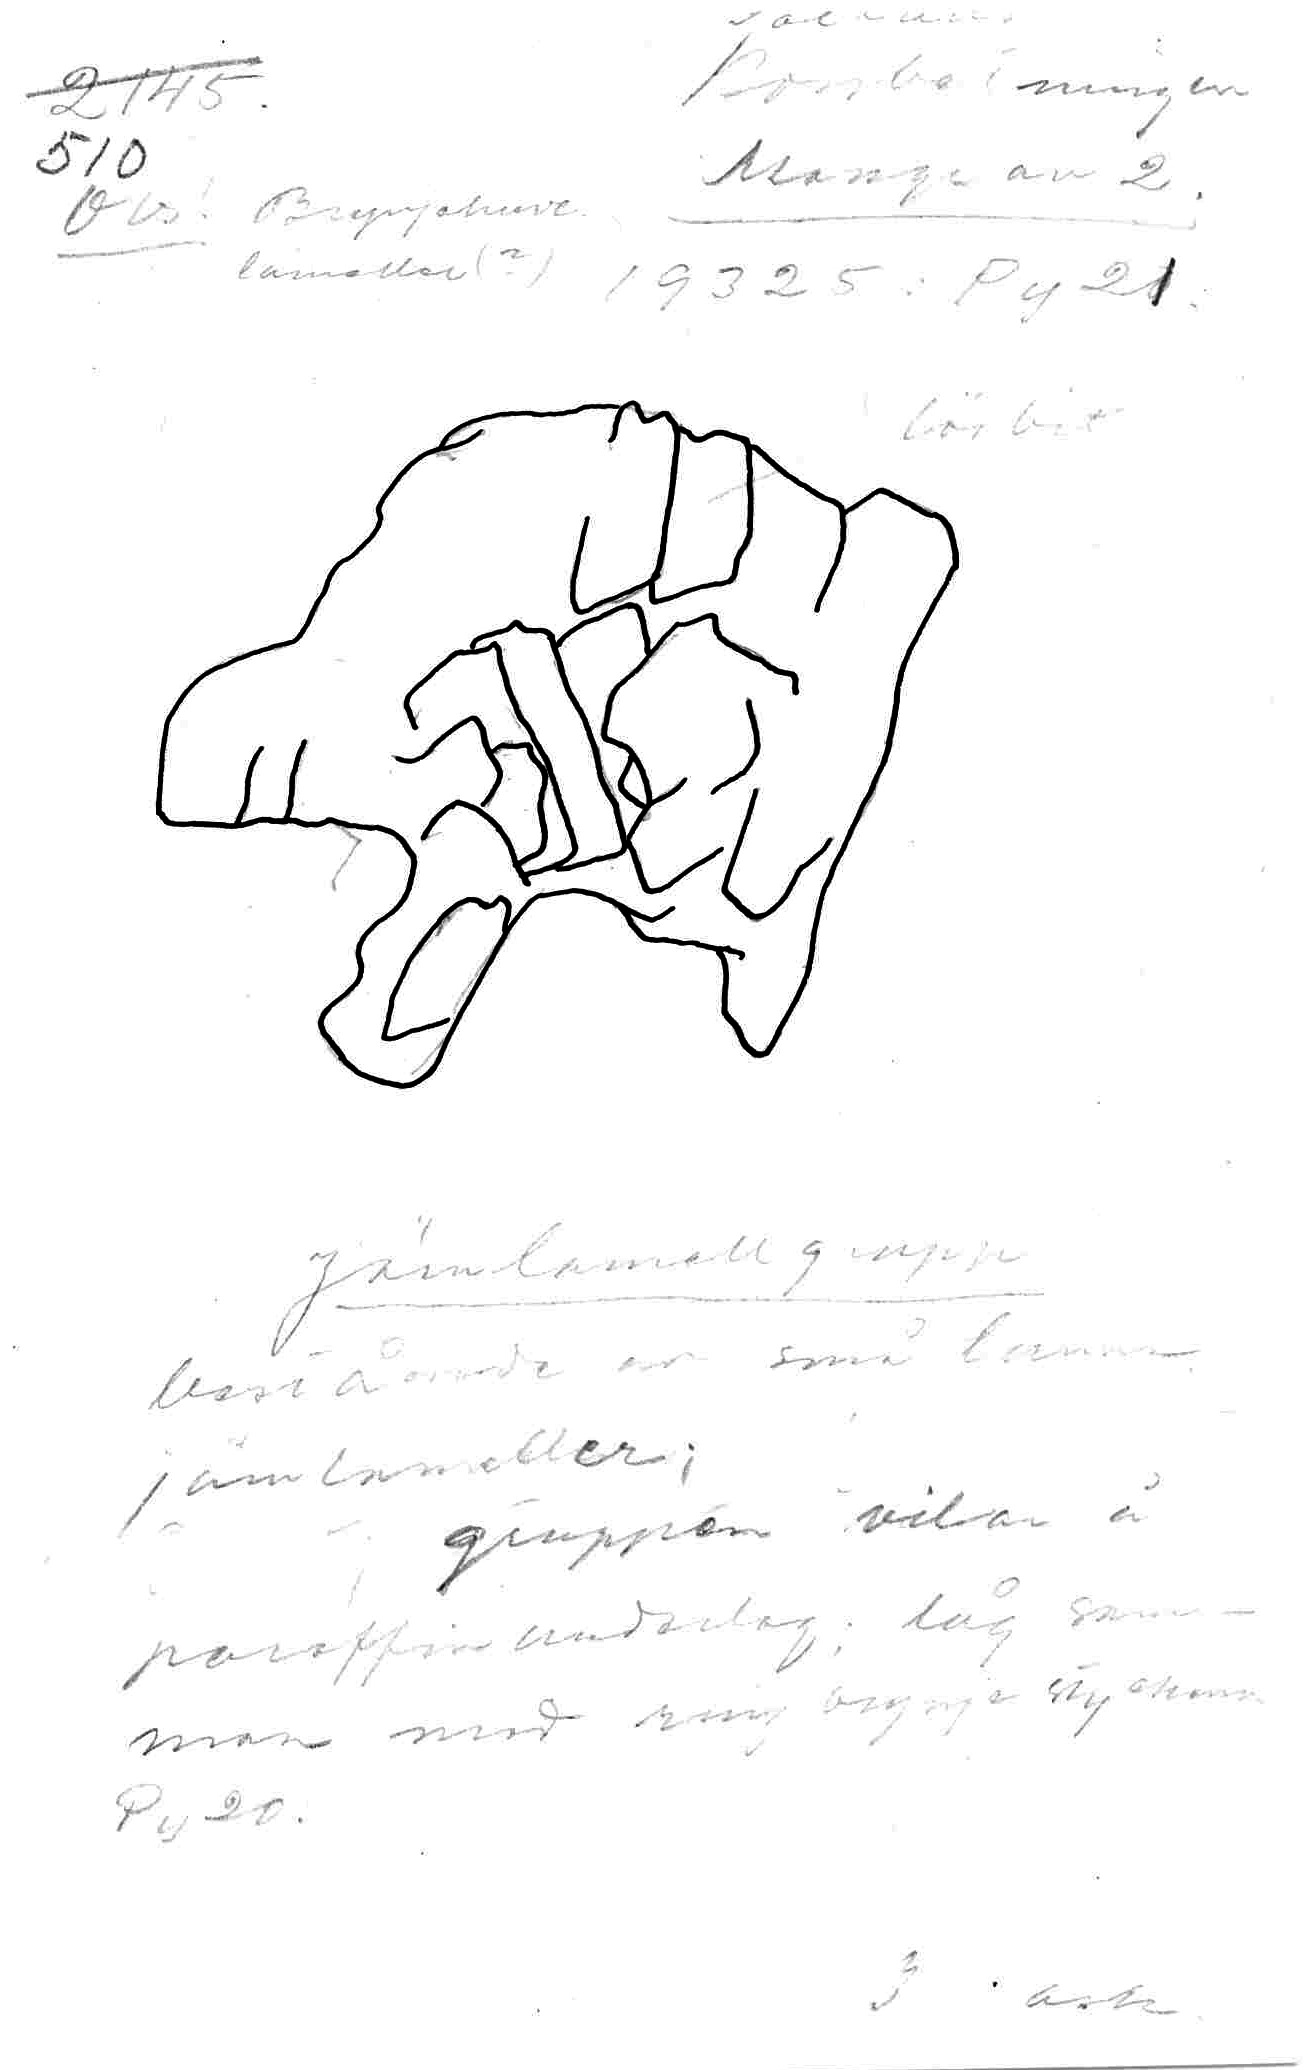 2145.
510
Obs! Brynjehuve
lameller (?)
Mange av 2.
19325: Py 21.
lös bit
Järnlamellgrupp
bestående av små
järnlameller;
gruppen vilar å
paraffinunderlag; låg sam-
man med ringbrynjestycken
Py 20.
3 ask